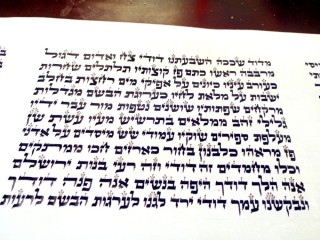 מדוד שככה השבעתנו דודי צח ואדום דגול
מרבבה ראשו כתם פז קוצותיו תלתלים שחרות
כעורב עיניו כיונים על אפיקי מים רחצות בחלב
ישבות על מלאת לחיו כערוגת הבשם מגדלות
מרקחים שפתותיו שושנים נטפות מור עבר ידיו
גלילי זהב ממלאים בתרשיש מעיו עשת שן
מעלפת ספירים שוקיו עמודי שש מיסדים על אדני
פז מראהו כלבנון בחור כארזים חכו ממתקים
וכלו מחמדים זה דודי וזה רעי בנות ירושלם
אנה הלך דודך היפה בנשים אנה פנה דודך
ונבקשנו עמך דודי ירד לגנו לערגות הבשם לרעות